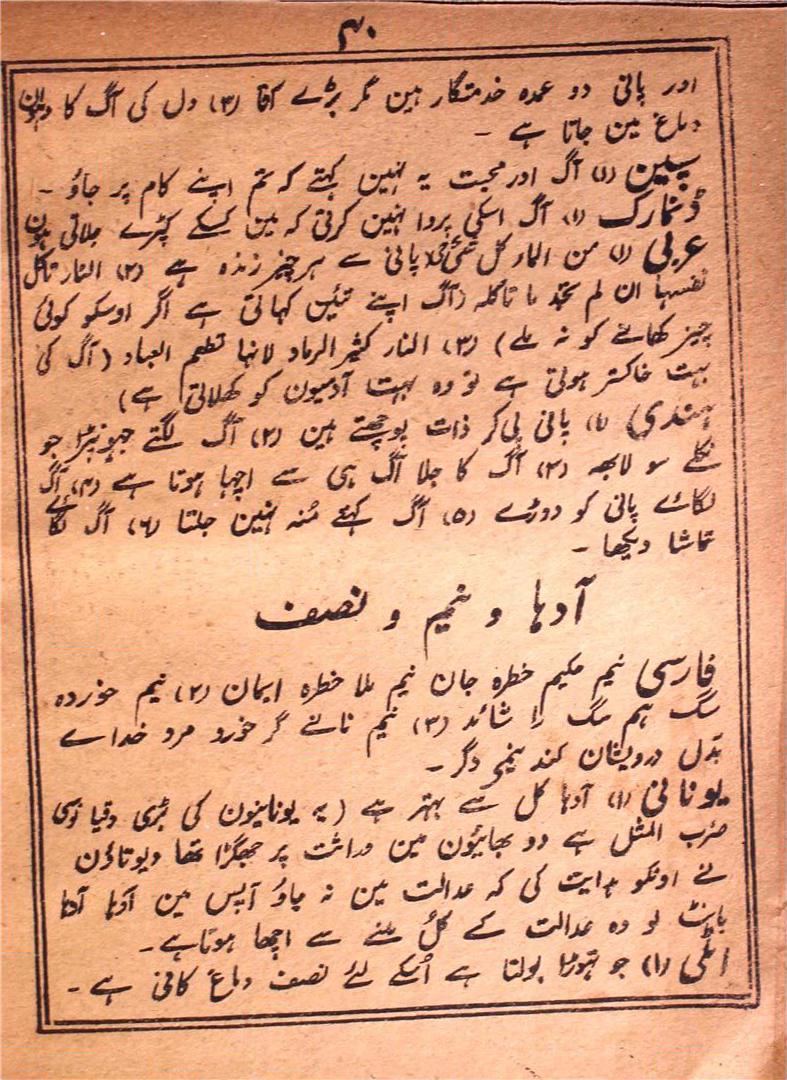 ۴۰
اور پانی دو عمدہ خدمتگار ہین مگر بڑے آقا (۳) دل کی آگ کا دہوان
دماغ مین جاتا ہے ۔
سپین (۱) آگ اور محبت یہ نہین کہتے کہ تم اپنے کام پر جاؤ ۔
ڈنمارک (۱) آگ اسکی پروا نہین کرتی کہ مین کسکے کپڑے جلاتی ہون
عربی (۱) من الماء کل شئی حی پانی سے ہر چیز زندہ ہے (۲) النار تاکل
نفسہا ان لم تجد ما تاکلہ (آگ اپنے تئین کہاتی ہے اگر اوسکو کوئی
چیز کھانے کو نہ ملے) (۳) النار کثیر الرماد لانہا تطعم العباد (آگ کی
بہت خاکستر ہوتی ہے تو وہ بہت آدمیون کو کھلاتی ہے)
ہندی (۱) پانی پی کر ذات پوچھتے ہین (۲) آگ لگتے جہونپڑا جو
نکلے سو لابھ (۳) آگ کا جلا آگ ہی سے اچہا ہوتا ہے (۴) آگ
لگائے پانی کو دوڑے (۵) آگ کہئے مُنہ نہین جلتا (۶) آگ لگائے
تماشا دیکھا ۔
آدہا و نیم و نصف
فارسی نیم حکیم خطرہ جان نیم ملا خطرہ ایمان (۲) نیم خوردہ
سگ ہم سگ را شائد (۳) نیم نانے گر خورد مرد خداے
بذل درویشان کند نیمے دگر ۔
یونانی (۱) آدہا کل سے بہتر ہے (یہ یونانیون کی بڑی دقیانوسی
ضرب المثل ہے دو بھائیون مین وراثت پر جھگڑا تھا دیوتاؤن
نے اونکو ہدایت کی کہ عدالت مین نہ جاؤ آپس مین آدہا آدہا
بانٹ لو وہ عدالت کے کُل ملنے سے اچھا ہوتا ہے ۔
اٹلی (۱) جو تہوڑا بولتا ہے اُسکے لئے نصف دماغ کافی ہے ۔